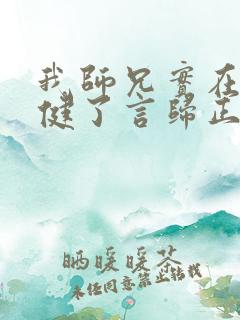 我師兄實在
健了言歸正
晒暖暖苓
未任同意禁止转载